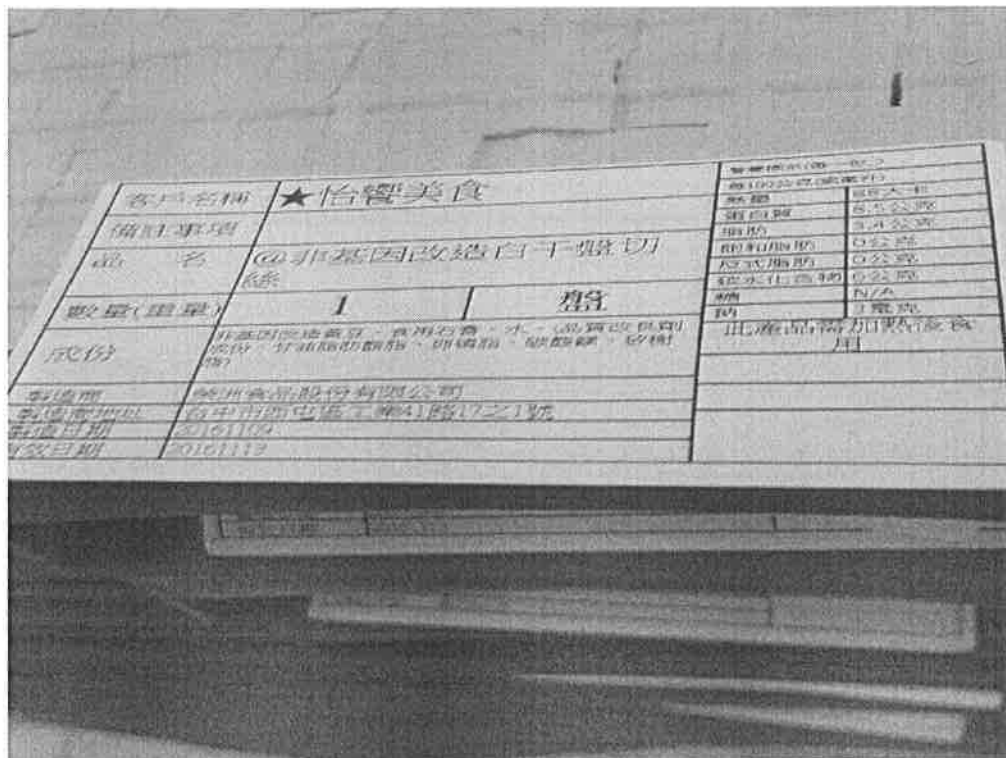 客戶名稱 ★怡饗美食
備註事項
品 名 @非基因改造白干盤切
絲
數量(重量) 1 盤
成份 非基因改造黃豆、食用石膏、水、(品質改良劑
成份、甘油脂肪酸脂、卵磷脂、碳酸鎂、矽樹
脂)
製造商 食品股份有限公司
製造商地址 台中市西屯區工業41路17之1號
製造日期 20161109
有效日期 20161113
每100公克
熱量 大卡
蛋白質 8.5公克
脂肪 3.4公克
飽和脂肪 0公克
反式脂肪 0公克
碳水化合物 6公克
糖 N/A
鈉 毫克
此產品需加熱後食
用